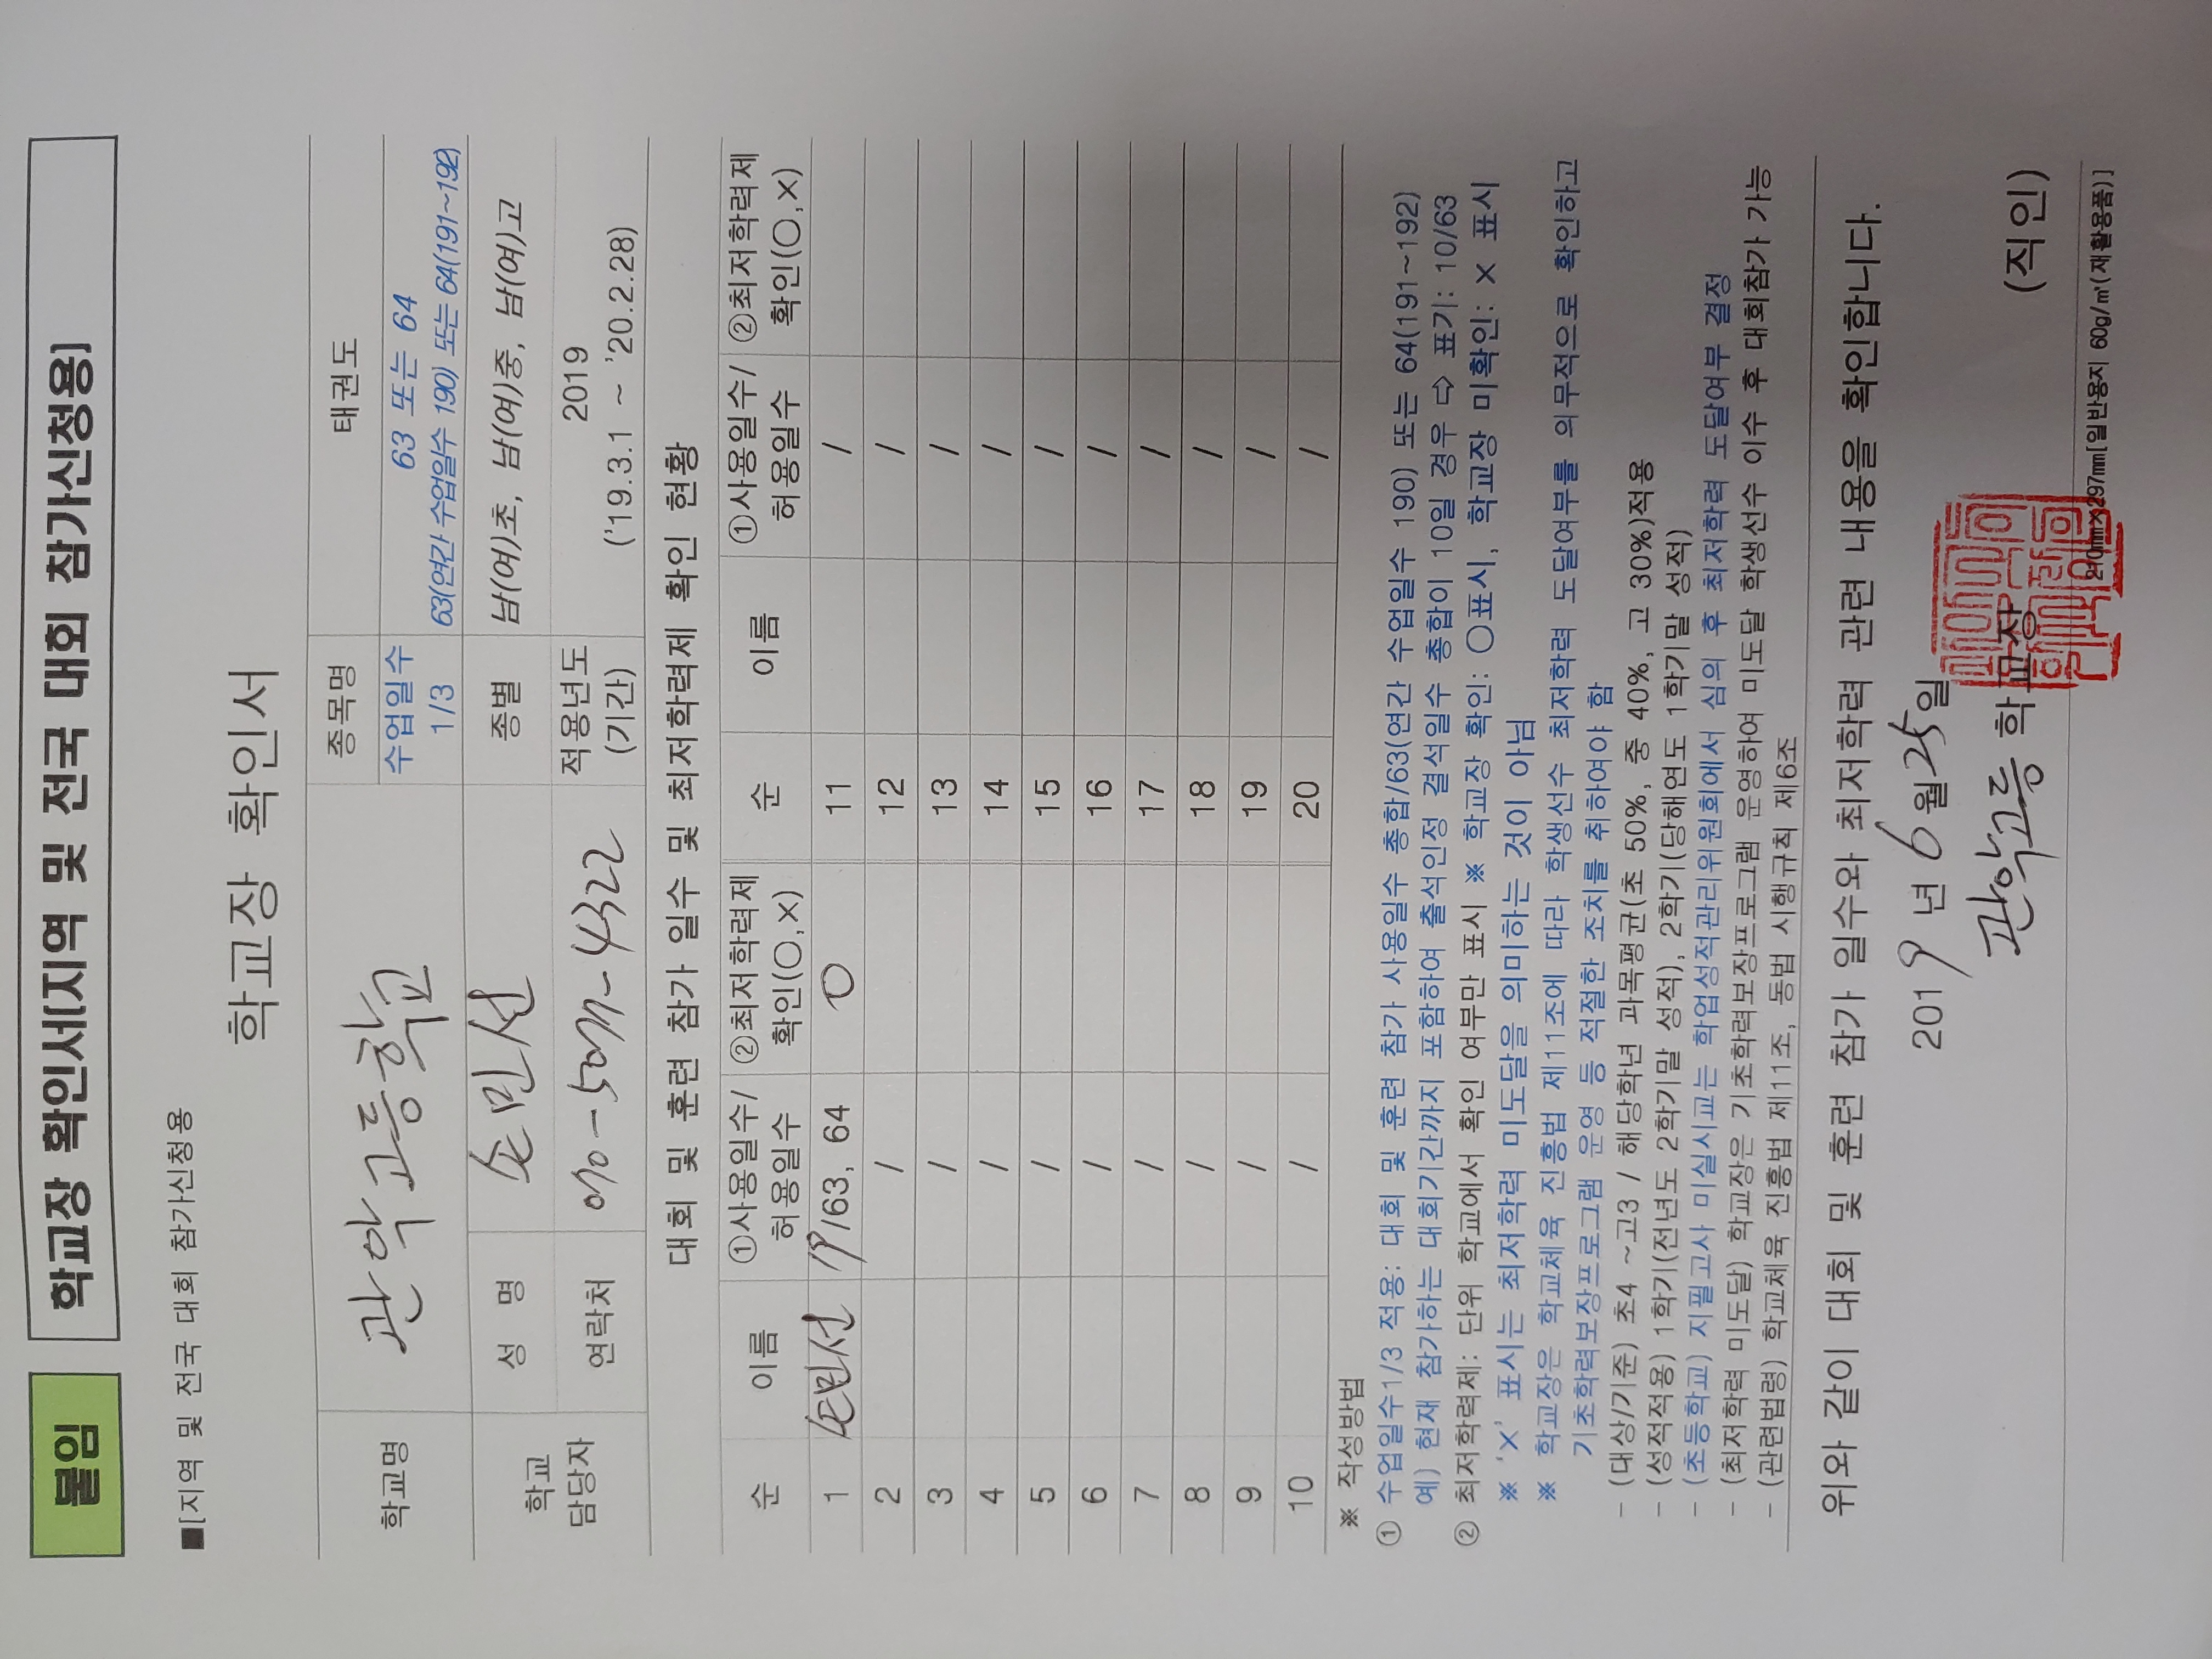 붙임
학교장 확인서[지역 및 전국 대회 참가신청용]
■[지역 및 전국 대회 참가신청용
학교장 확인서
학교명 관악고등학교 종목명 태권도
수업일수 1/3 63 또는 64
63(연간 수업일수 190) 또는 64(191~192)
학교 담당자 성 명 손민선 종별 남(여)초, 남(여)중, 남(여)고
연락처 적용년도 (기간) 2019
('19.3.1 ~ '20.2.28)
대회 및 훈련 참가 일수 및 최저학력제 확인 현황
순 이름 ①사용일수/허용일수 ②최저학력제 확인(○,×) 순 이름 ①사용일수/허용일수 ②최저학력제 확인(○,×)
1 손민선 /63, 64 ○ 11 /
2 / 12 /
3 / 13 /
4 / 14 /
5 / 15 /
6 / 16 /
7 / 17 /
8 / 18 /
9 / 19 /
10 / 20 /
※ 작성방법
① 수업일수1/3 적용: 대회 및 훈련 참가 사용일수 총합/63(연간 수업일수 190) 또는 64(191~192)
예) 현재 참가하는 대회기간까지 포함하여 출석인정 결석일수 총합이 10일 경우 ⇨ 표기: 10/63
② 최저학력제: 단위 학교에서 확인 여부만 표시 ※ 학교장 확인: ○표시, 학교장 미확인: × 표시
※ '×' 표시는 최저학력 미도달을 의미하는 것이 아님
※ 학교장은 학교체육 진흥법 제11조에 따라 학생선수 최저학력 도달여부를 의무적으로 확인하고
기초학력보장프로그램 운영 등 적절한 조치를 취하여야 함
- (대상/기준) 초4 ~고3 / 해당학년 과목평균(초 50%, 중 40%, 고 30%)적용
- (성적적용) 1학기(전년도 2학기말 성적), 2학기(당해연도 1학기말 성적)
- (초등학교) 지필고사 미실시교는 학업성적관리위원회에서 심의 후 최저학력 도달여부 결정
- (최저학력 미도달) 학교장은 기초학력보장프로그램 운영하여 미도달 학생선수 이수 후 대회참가 가능
- (관련법령) 학교체육 진흥법 제11조, 동법 시행규칙 제6조
위와 같이 대회 및 훈련 참가 일수와 최저학력 관련 내용을 확인합니다.
2019 년 6월 25일
관악고등 학교장 (직인)
210㎜×297㎜[일반용지 60g/㎡(재활용품)]